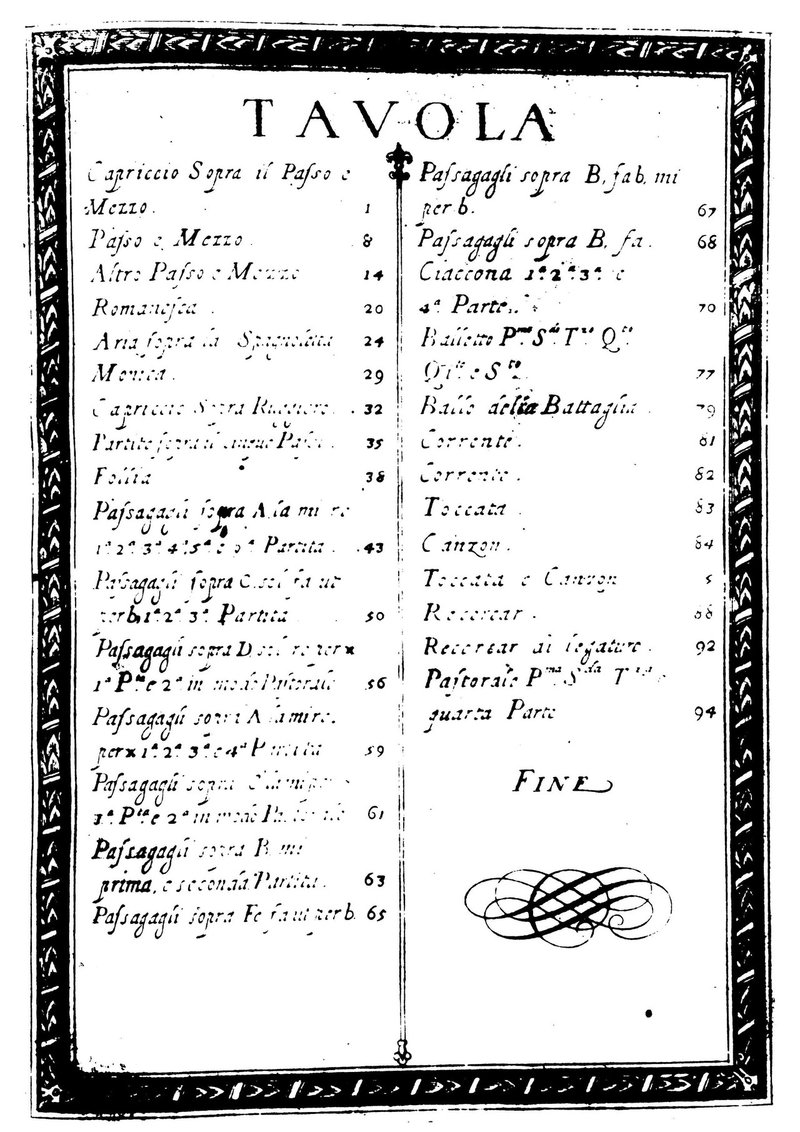 TAVOLA
Capriccio Sopra il Paſso e
Mezzo. 1
Paſso e Mezzo. 8
Altro Paſso e Mezzo 14
Romanesca. 20
Aria ſopra la Spagnoletta 24
Monica. 29
Capriccio Sopra Ruggiero. 32
Partite ſopra il cinque Paſsi. 35
Follia 38
Paſsagagli ſopra A la mi re
1ª 2ª 3ª 4ª 5ª e Partita. 43
Paſsagagli ſopra C. sol fa ut
per b. 1ª 2ª 3ª Partita 50
Paſsagagli sopra D. sol re per x
1ª Pte e 2ª in modo Paſtorale 56
Paſsagagli sopra A la mi re.
per x 1ª 2ª 3ª e 4ª Partita 59
Paſsagagli sopra
3ª Pte e 2ª in modo 61
Paſsagagli sopra B. mi
prima, e seconda Partita. 63
Paſsagagli ſopra Fe fa ut per b. 65
Paſsagagli sopra B. fa b. mi
per b. 67
Paſsagagli sopra B. fa. 68
Ciaccona 1ª 2ª 3ª e
4ª Parte. 70
Balletto Pmo Sdo Tzo Qto
Qnto e Sto. 77
Ballo della Battaglia. 79
Corrente. 81
Corrente. 82
Toccata. 83
Canzon. 84
Toccata e Canzon
Recercar. 88
Recercar di legature. 92
Paſtorale Pma Sda Tza e
quarta Parte 94
FINE